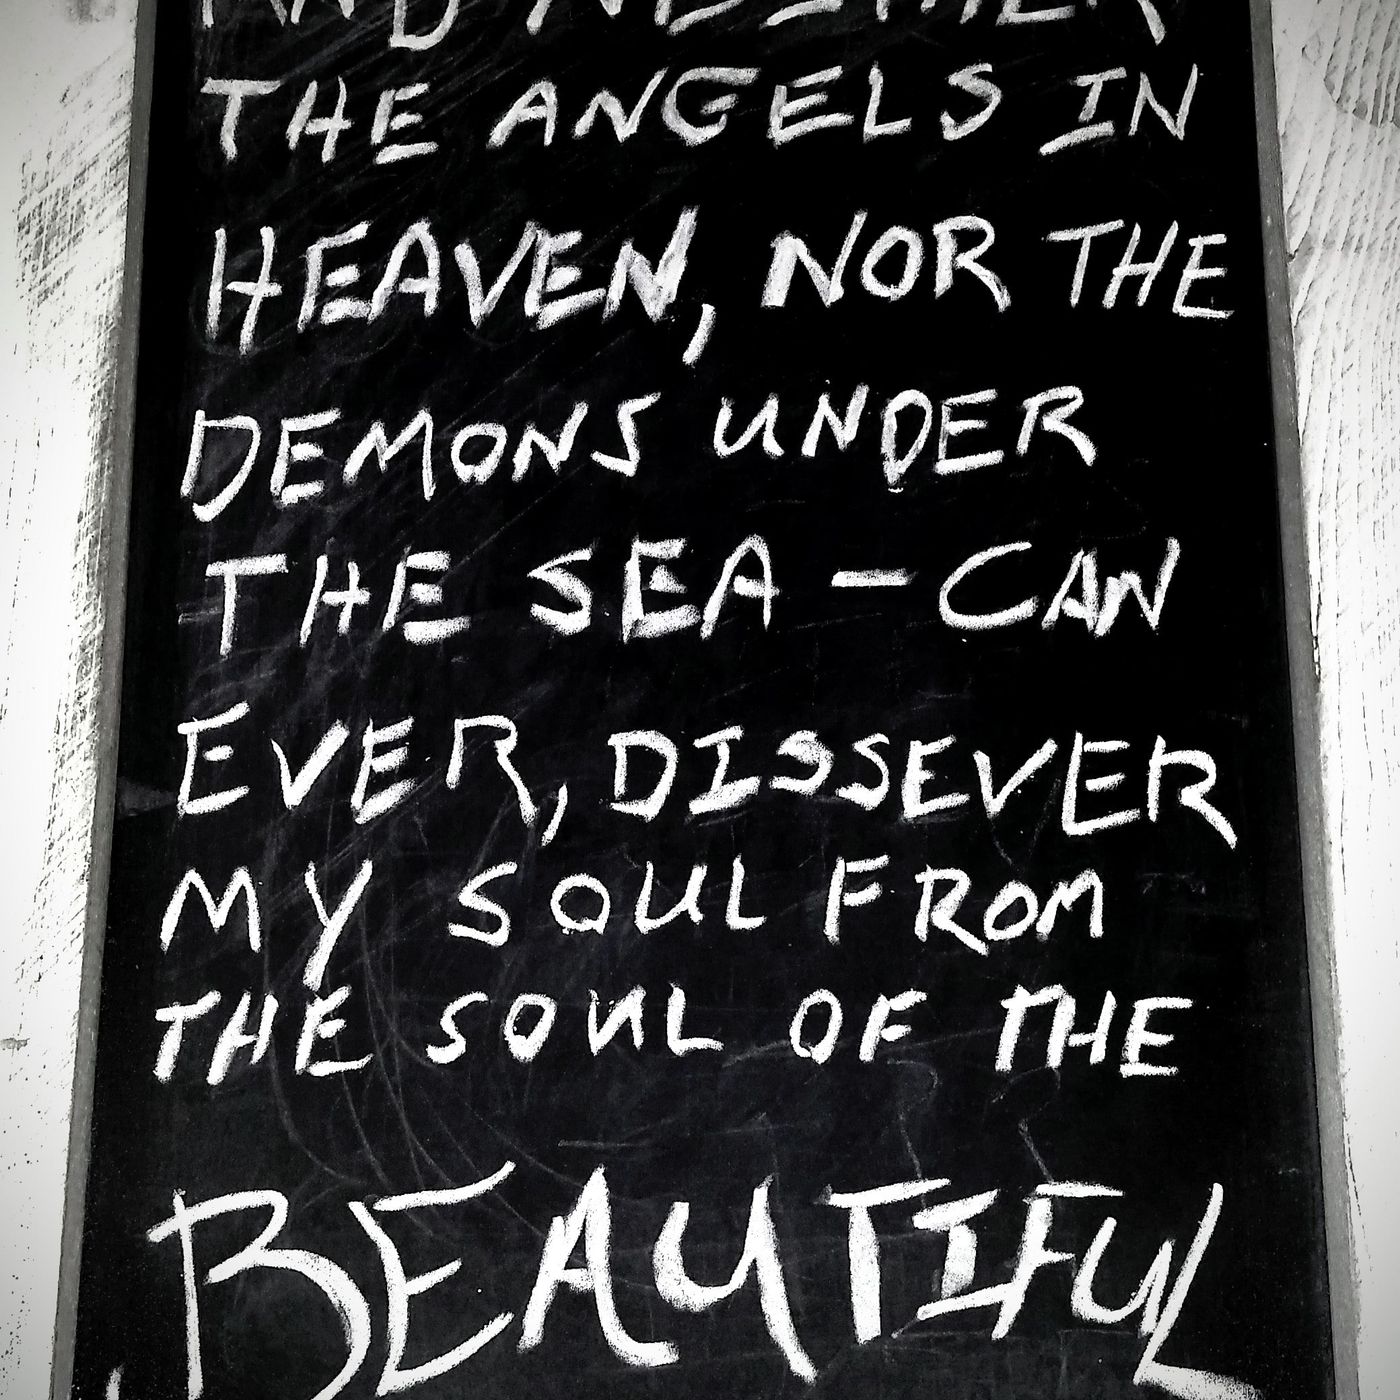 AND NEITHER
THE ANGELS IN
HEAVEN, NOR THE
DEMONS UNDER
THE SEA - CAN
EVER, DISSEVER
MY SOUL FROM
THE SOUL OF THE
BEAUTIFUL